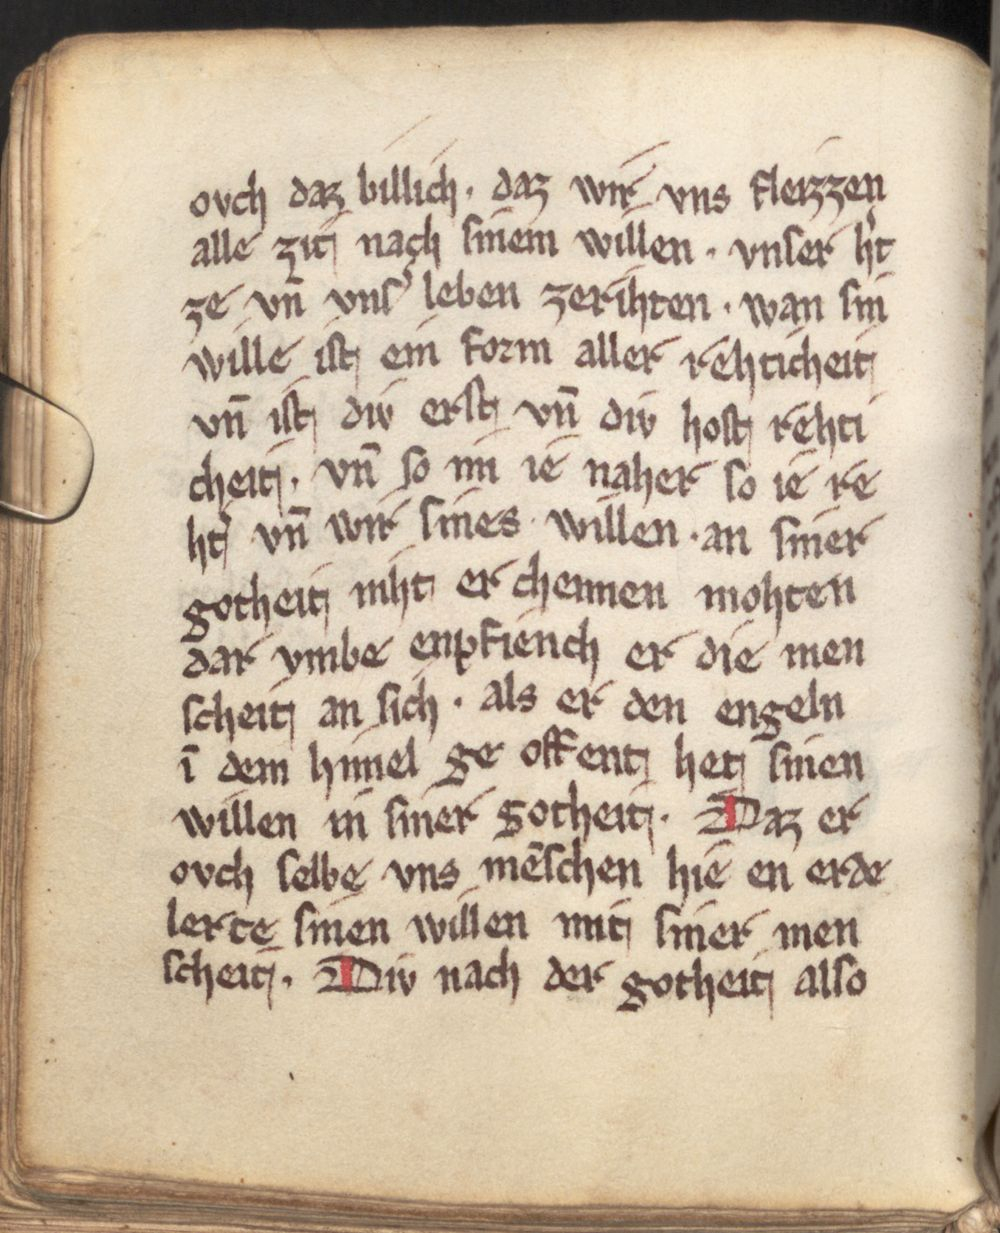 ovch daz billich · daz wir vns fleizzen
alle zit nach sinem willen · vnser h't
ze vn̄ vns' leben zerihten · wan sin
wille ist ein form aller rehticheit
vn̄ ist div erst vn̄ div host rehti
cheit · vn̄ so im ie naher so ie re
ht' vn̄ wir sines willen · an siner
gotheit niht er chennen mohten
dar ymbe enpfiench er die men
scheit an sich · als er den engeln
ī dem himel ge offent het sinen
willen in siner gotheit · Daz er
ovch selbe vns mēschen hie en erde
lerte sinen willen mit siner men
scheit · Div nach der gotheit also